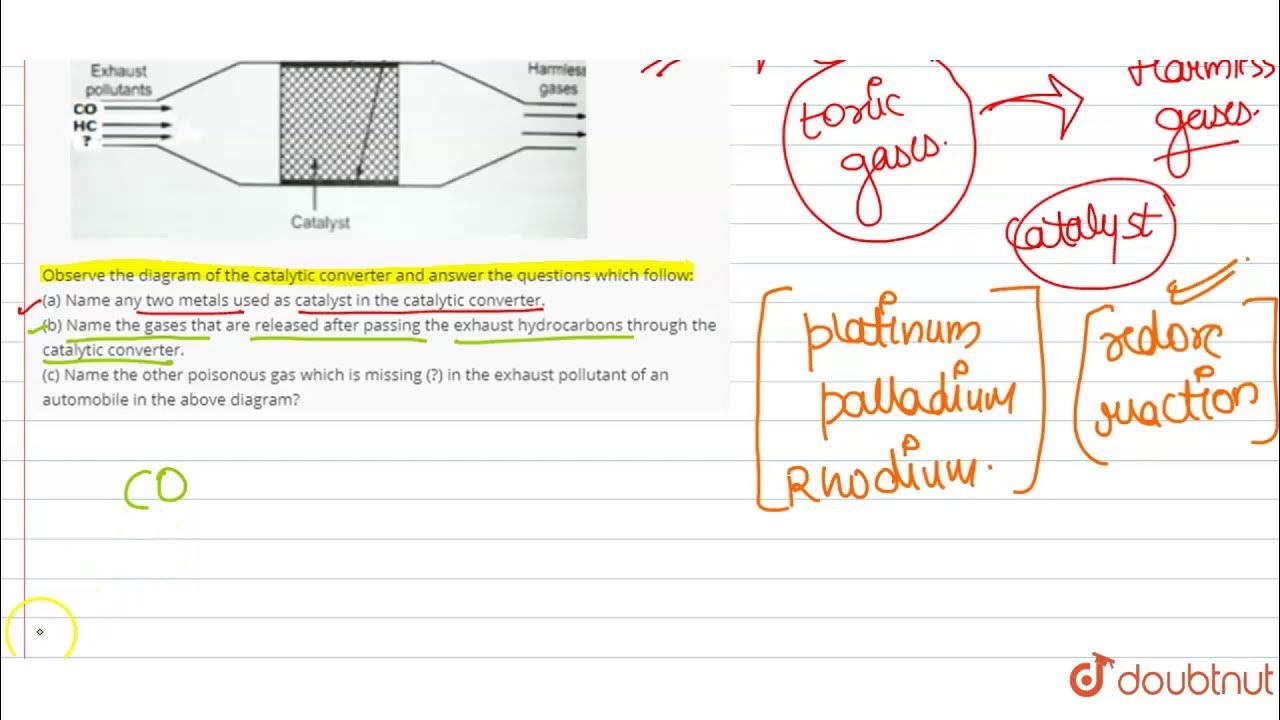 Exhaust
pollutants
CO
HC
?
Harmless
gases
Catalyst
Observe the diagram of the catalytic converter and answer the questions which follow:
(a) Name any two metals used as catalyst in the catalytic converter.
(b) Name the gases that are released after passing the exhaust hydrocarbons through the
catalytic converter.
(c) Name the other poisonous gas which is missing (?) in the exhaust pollutant of an
automobile in the above diagram?
CO
toxic
gases.
Harmless
gases.
Catalyst
platinum
palladium
Rhodium.
redox
reaction
doubtnut